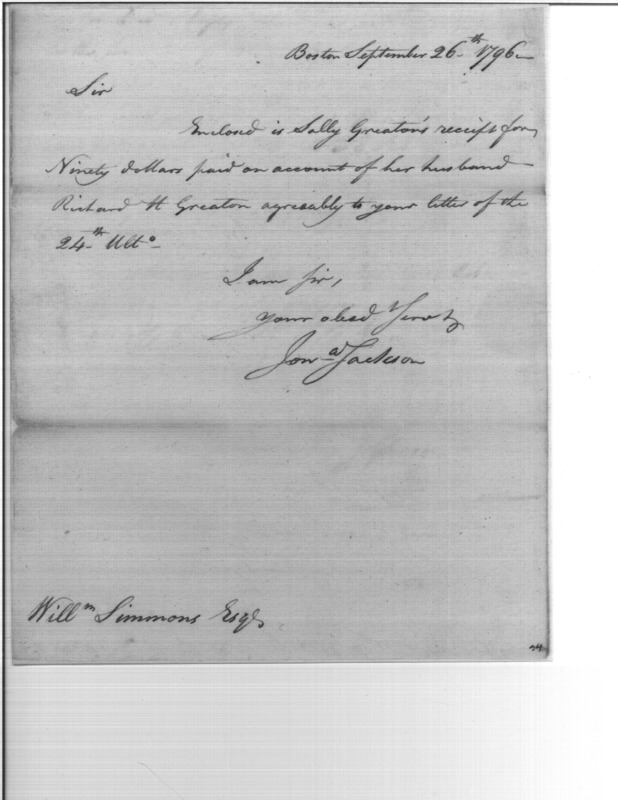 Boston September 26th 1796
Sir
Enclosed is Sally Greaton's receipt for
Ninety dollars paid on account of her husband
Richard H Greaton agreeably to your letter of the
24th Ulto
I am Sir,
your obed Servt
Jona Jackson
Willm Simmons Esqr
24